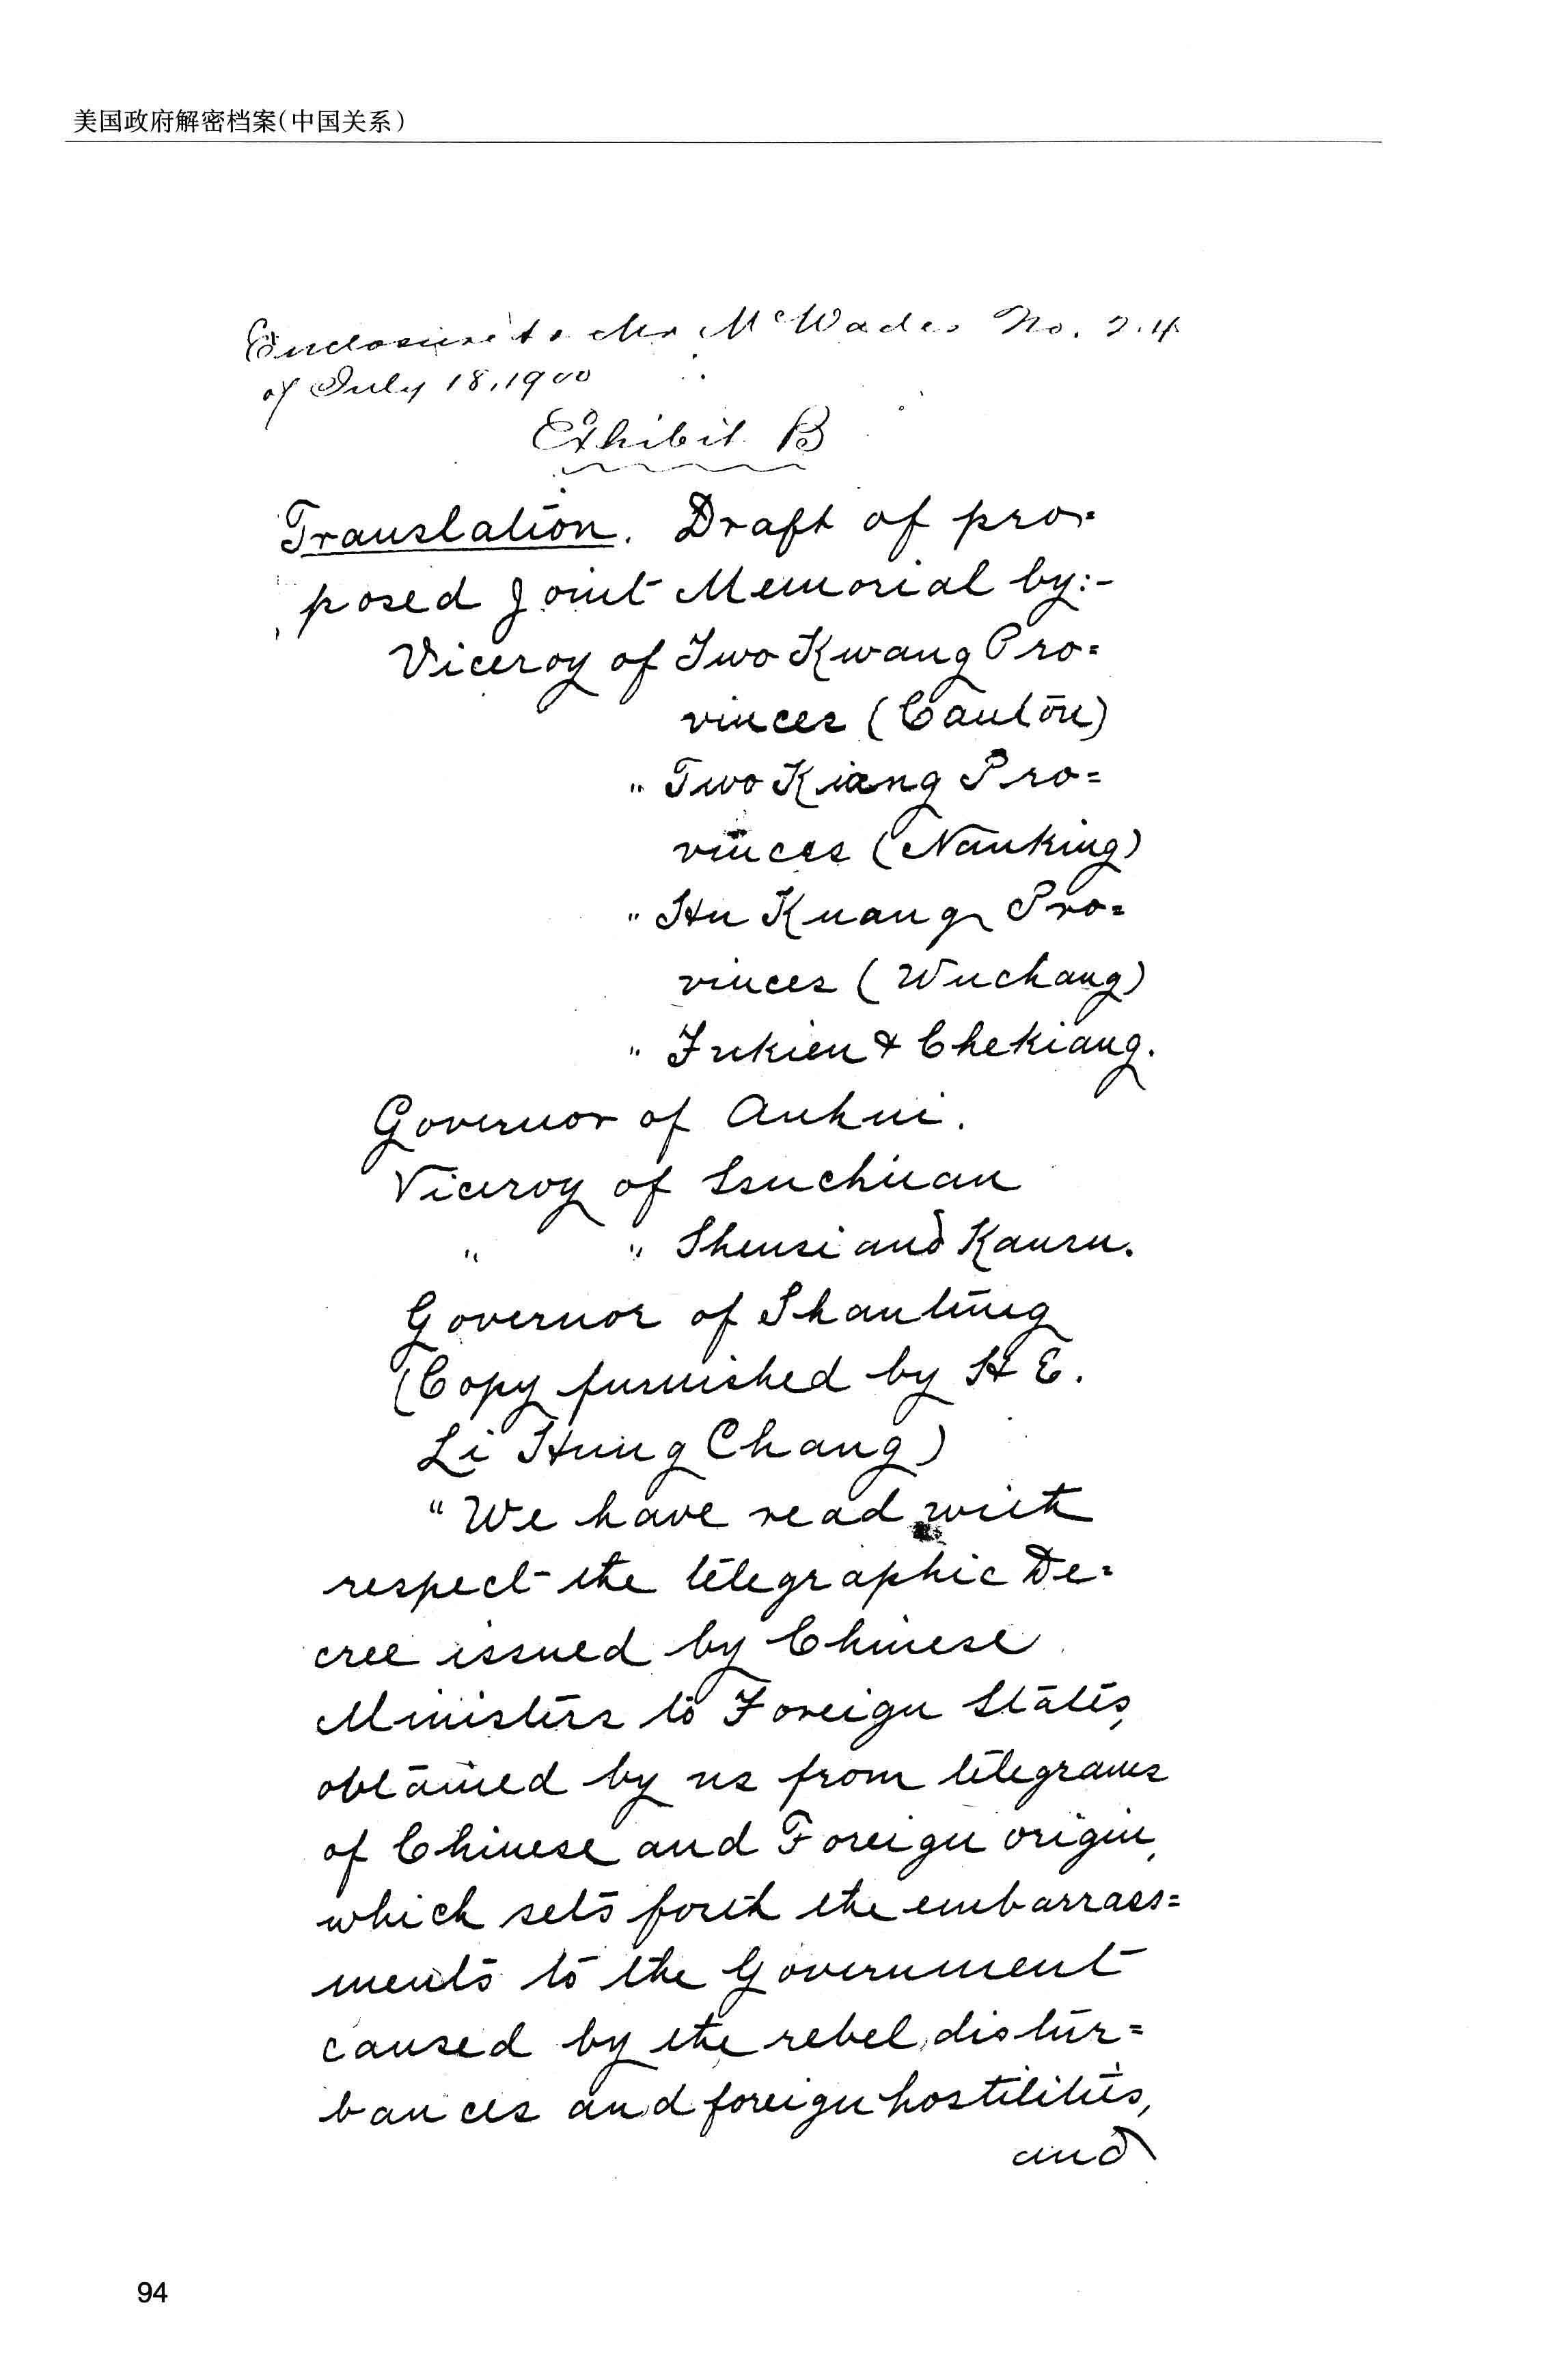 美国政府解密档案(中国关系)
Enclosure to Mr McWade's No. 24
of July 18, 1900
Exhibit B
Translation. Draft of pro=
posed Joint Memorial by:-
Viceroy of Two Kwang Pro=
vinces (Canton)
" Two Kiang Pro=
vinces (Nanking)
" Hu Kuang Pro=
vinces (Wuchang)
" Fukien & Chekiang.
Governor of Anhui.
Viceroy of Ssuchuan
" " Shensi and Kansu.
Governor of Shantung
(Copy furnished by H E.
Li Hung Chang)
"We have read with
respect the telegraphic De=
cree issued by Chinese
Ministers to Foreign States,
obtained by us from telegrams
of Chinese and Foreign origin,
which sets forth the embarrass=
ments to the Government
caused by the rebel distur=
bances and foreign hostilities,
and
94